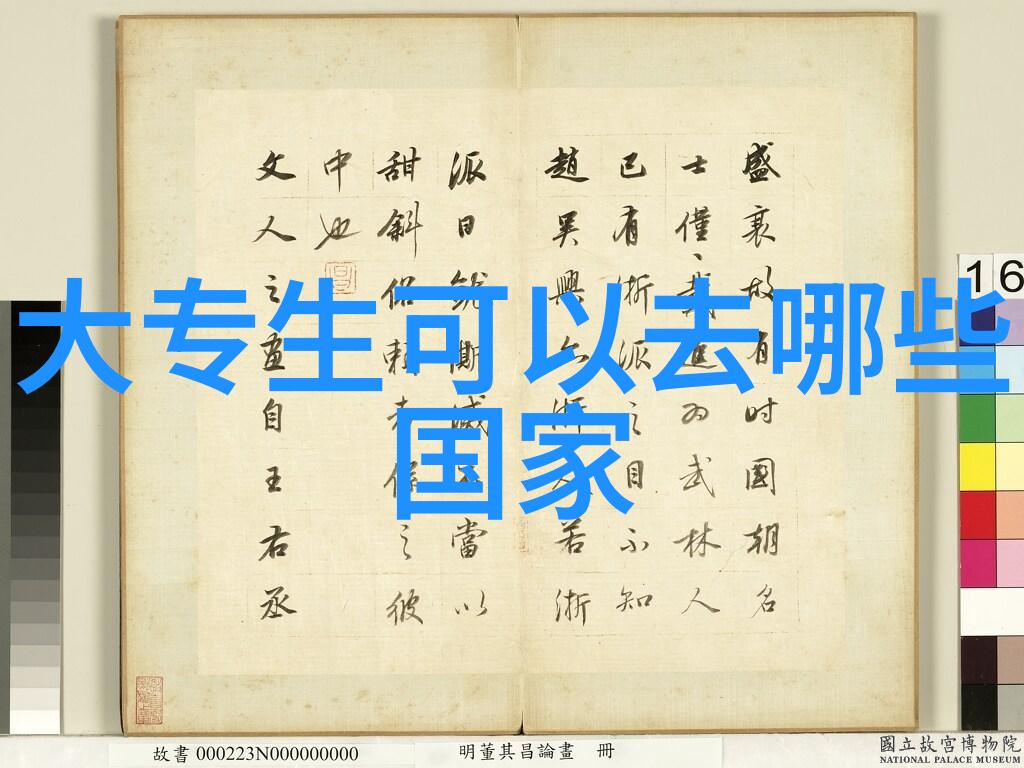 大专生可以去哪些
国家
盛衰故有时國朝名
士僅戴進為武林人
已有浙派之目不知
趙吳興亦浙人若浙
派日就澌滅不當以
甜斜俗賴者係之彼
中也
文人之畫自王右丞
16
故書 000223N000000000
明董其昌論畫 冊
國立故宮博物院
NATIONAL PALACE MUSEUM